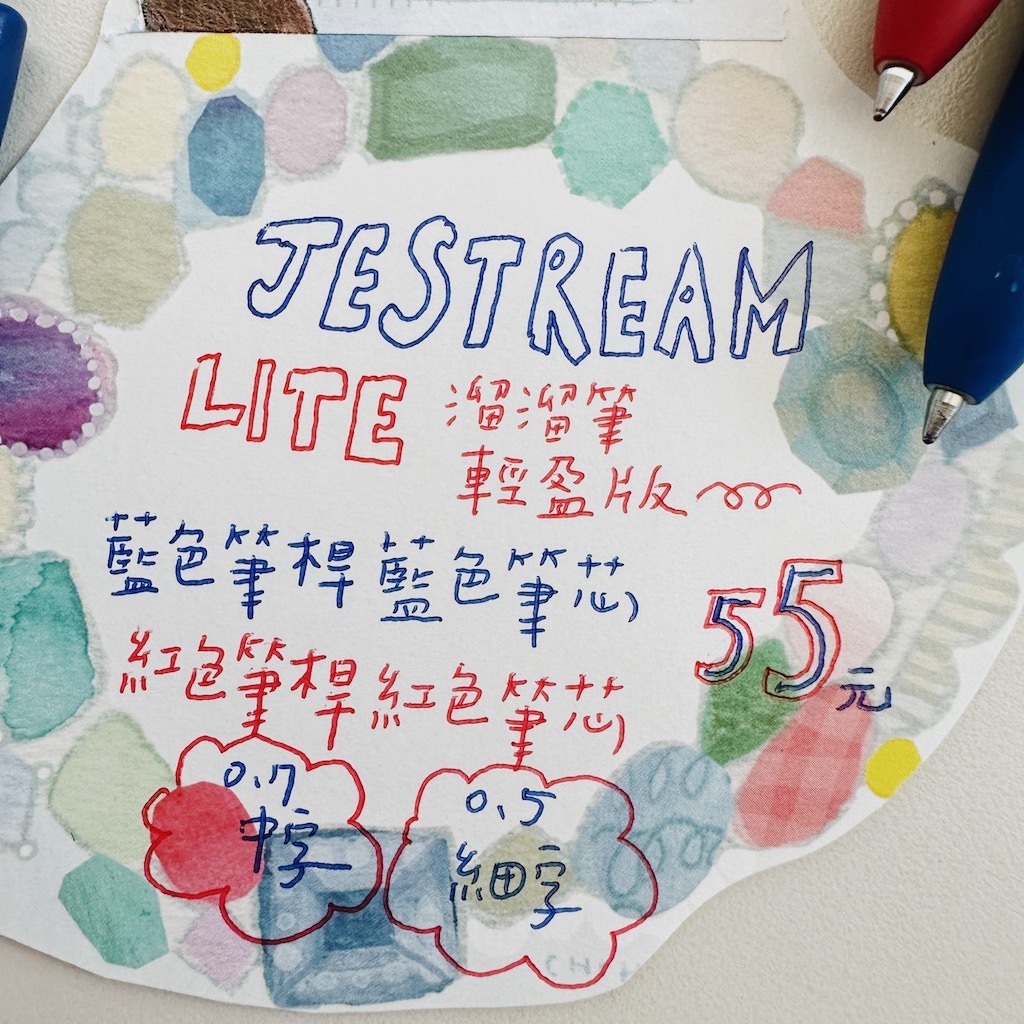 JESTREAM
LITE 溜溜筆
輕盈版
藍色筆桿 藍色筆芯
紅色筆桿 紅色筆芯
55元
0.7 0.5
中字 細字